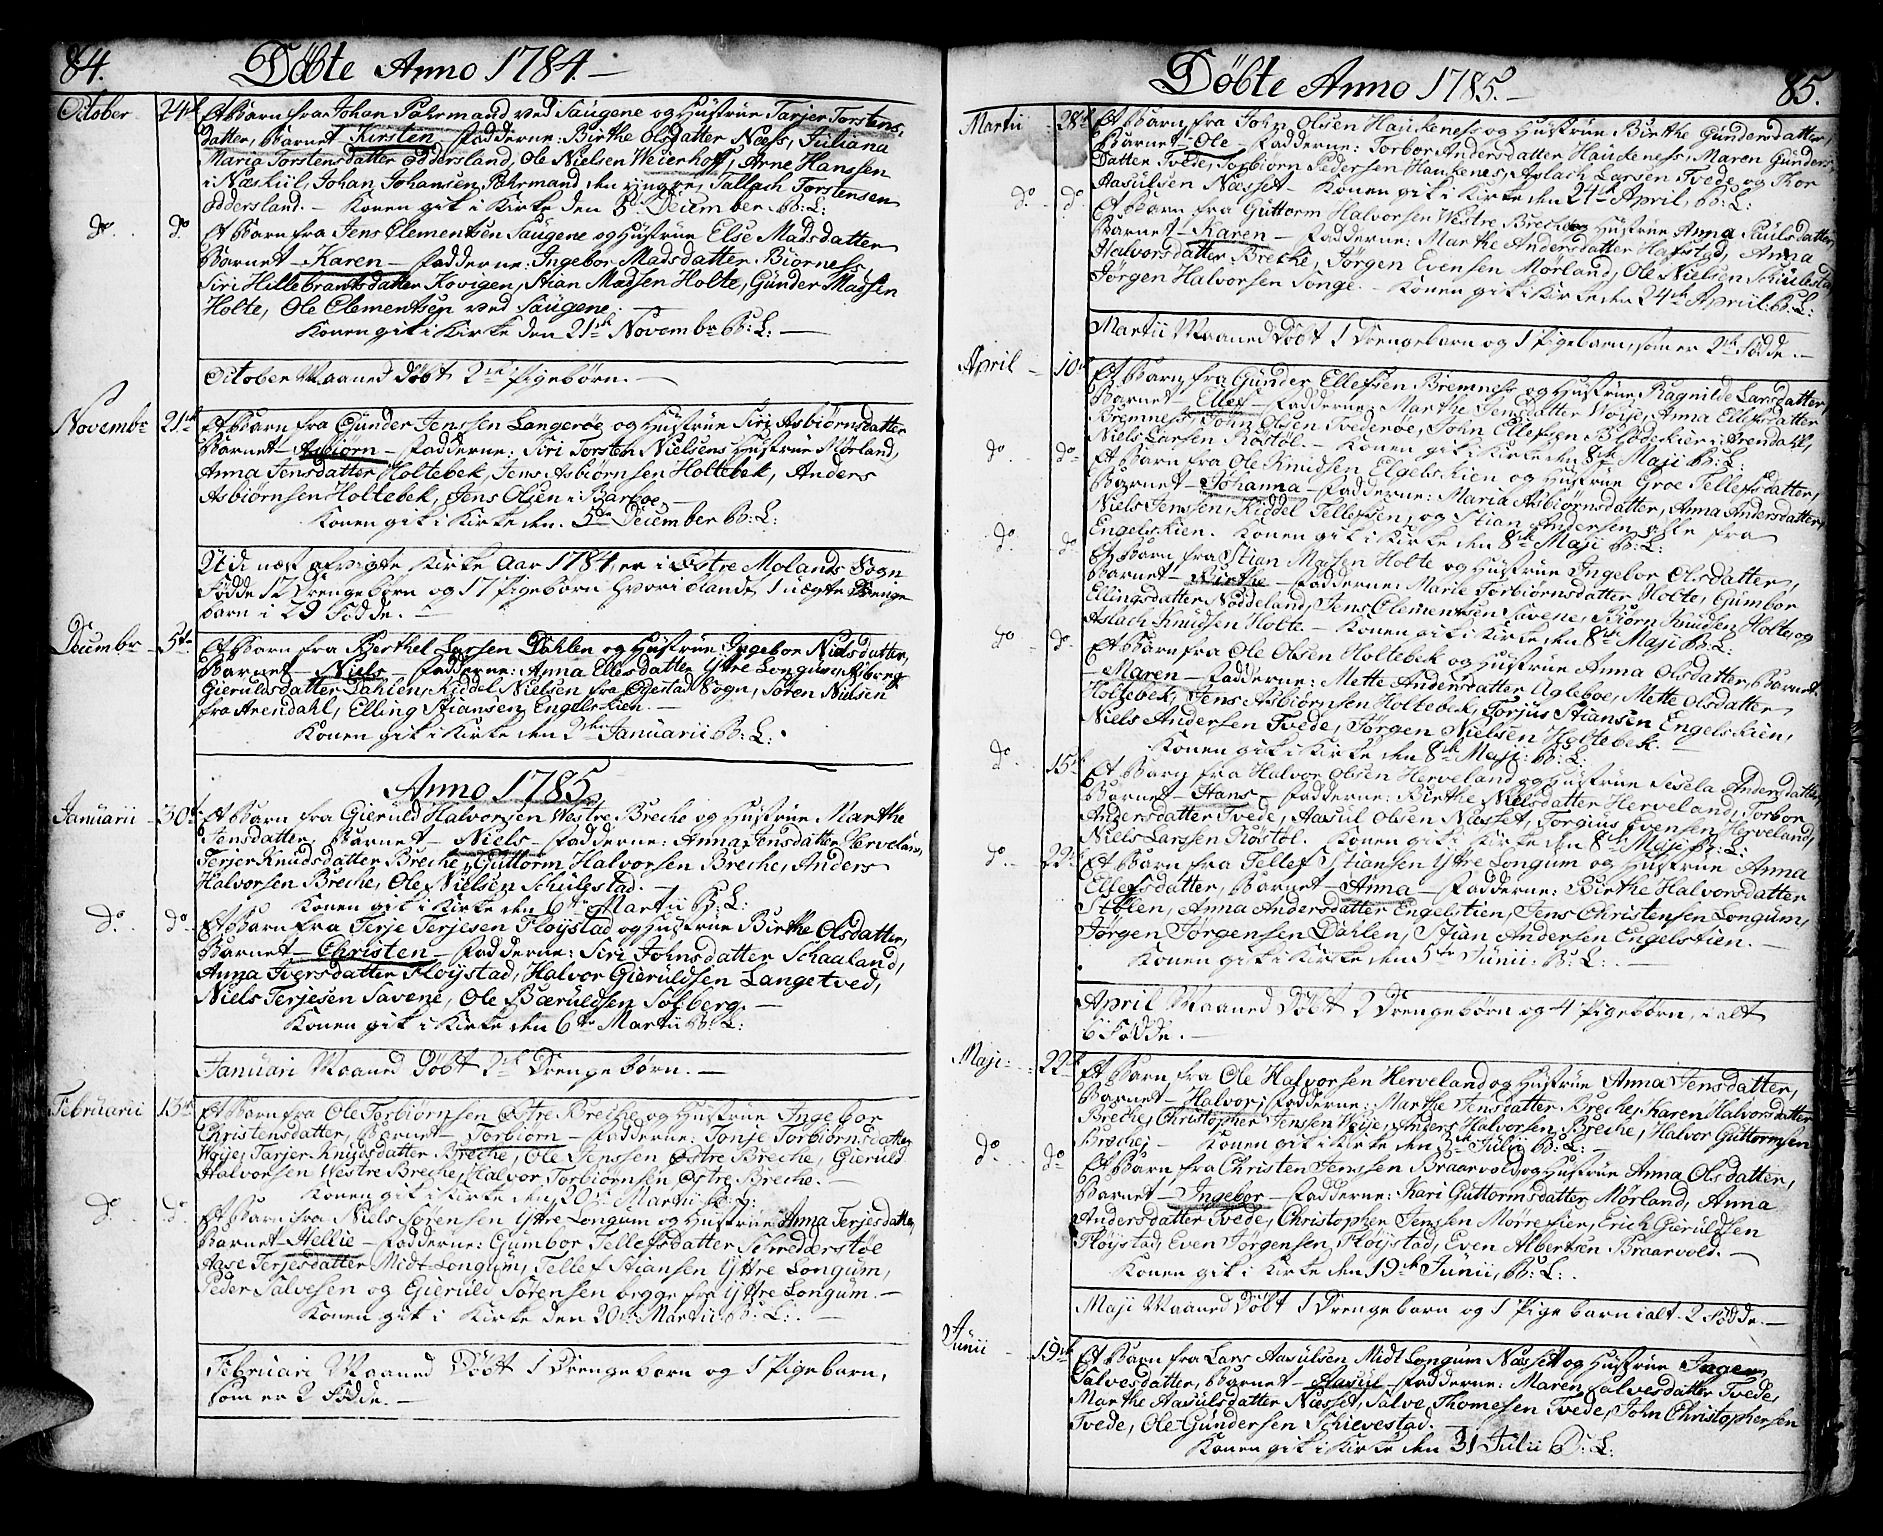 84. Döbte Anno 1784.
October 24de Et Barn fra Johan Pahrmand ved Saugene og Hustrue Tarjer Torstens-
datter, Barnet Kirsten Fadderne: Birthe Olsdatter Næss, Juliana
Maria Torstensdatter Oddersland, Ole Nielsen Weierhoff, Arne Hanssen
i Næskiil, Johan Johansen Pahrmand den yngre, Tallach Torstensen
Oddersland. – Konen gik i Kirke den 5te December B: L:
do do Et Barn fra Jens Clementsen Saugene og Hustrue Else Madsdatter
Barnet – Karen – Fadderne: Ingebor Madsdatter Biorness,
Siri Hillebrantsdatter Kovigen, Stian Madsen Holte, Gunder Madsen
Holte, Ole Clementsen ved Saugene.
Konen gik i Kirke den 21de Novembr B: L: –
October Maaned Döbt 2de Pigebörn. –
Novembr 21de Et Barn fra Günder Jenssen Langeröe og Hustrue Siri Asbiörnsdatter
Barnet – Asbiörn – Fadderne: Siri Torsten Nielsens Hustrue Mörland,
Anna Jensdatter Holtebek, Jens Asbiörnsen Holtebek, Anders
Asbiörnsen Holtebek, Jens Olsen i Barboe –
Konen gik i Kirke den 5te December B: L:
Udi næst afvigte Kirke Aar 1784 er i Östre Molands Sogn
Födde 12 Drengebörn og 17 Pigebörn hvoriblandt 1 uægte Drenge
barn i 29 Födde. –
Decembr 5te Et Barn fra Berthel Larsen Dahlen og Hustrue Ingebor Nielsdatter,
Barnet – Niels – Fadderne: Anna Ellefsdatter Yttre Longum, Asbreg
Gieruldsdatter Dahlen, Kiddel Nielsen fra Öjestad Sogn, Sören Nielsen
fra Arendahl, Elling Stiansen Engelskien. –
Konen gik i Kirke den 2den Januarii B: L:
Anno 1785
Januarii 30te Et Barn fra Gieruld Halvorsen Westre Breche og Hustrue Marthe
Jensdatter, Barnet – Niels – Fadderne: Anna Jensdatter Herveland,
Terjer Knudsdatter Breche, Guttorm Halvorsen Breche, Anders
Halvorsen Breche, Ole Nielsen Schulestad. –
Konen gik i Kirke den 6te Martii B: L:
do do Et Barn fra Terje Terjesen Flöystad og Hustrue Birthe Olsdatter,
Barnet – Christen – Fadderne: Siri Johnsdatter Schaaland,
Anna Iversdatter Flöystad, Halvor Gieruldsen Langetved,
Niels Terjesen Savene, Ole Bæruldsen Solberg. –
Konen gik i Kirke den 6te Martii B: L:
Januari Maaned Döbt 2de Drengebörn. –
Februarii 13de Et Barn fra Ole Torbiörnsen Östre Breche og Hustrue Ingebor
Christensdatter, Barnet – Torbiörn – Fadderne: Tonje Torbiörnsdatter
Weije, Tarjer Knudsdatter Breche, Ole Jenssen Östre Breche, Gieruld
Halvorsen Westre Breche, Halvor Torbiörnsen Östre Breche. –
Konen gik i Kirke den 20de Martii B: L:
do do Et Barn fra Niels Sörensen Yttre Longum og Hustrue Anna Terjesdatter
Barnet – Hellie – Fadderne: Gumbor Tellefsdatter Schredderstöe
Aase Terjesdatter Midt Longum, Tellef Stiansen Yttre Longum,
Peder Salvesen og Gieruld Sörensen begge fra Yttre Longum. –
Konen gik i Kirke den 20de Martii B: L: –
Februari Maaned Döbt 1 Drengebarn og 1 Pigebarn,
som er 2 Födde. –
Döbte Anno 1785. 85.
Martii 28de Et Barn fra John Olsen Haukeness og Hustrue Birthe Gundersdatter,
Barnet – Ole – Fadderne: Torbor Andersdatter Haukeness, Maren Gunders
Datter Tvede, Torbiörn Pedersen Haukenes, Aslach Larsen Tvede og Thor
Aasulsen Næsset – Konen gik i Kirke den 24de April, B: L:
do do Et Barn fra Guttorm Halvorsen Westre Breche og Hustrue Anna Paulsdatter,
Barnet – Karen – Fadderne: Marthe Andersdatter Hafstad, Anna
Halvorsdatter Breche, Jörgen Evensen Mörland, Ole Nielsen Schulestad
Jörgen Halvorsen Songe. – Konen gik i Kirke den 24de April B: L:
Martii Maaned Döbt 1 Drengebarn og 1 Pigebarn, som er 2de Födde. –
April 10de Et Barn fra Günder Ellefsen Bremness og Hustrue Ragnilde Larsdatter,
Barnet – Ellef – Fadderne: Marthe Jensdatter Weije, Anna Ellefsdatter
Bremness, John Olsen Tvederöe, John Ellefsen Blödekier i Arendahl,
Niels Larsen Röstöl. – Konen gik i Kirke den 8de Maji B: L:
do do Et Barn fra Ole Knudsen Elgelskien og Hustrue Groe Tellefsdatter,
Barnet – Johanna – Fadderne: Maria Asbiörnsdatter, Anna Andersdatter,
Niels Jensen, Kiddel Tellefsen, og Stian Andersen, alle fra
Engelskien. Konen gik i Kirke den 8de Maji B: L:
do do Et Barn fra Stian Madsen Holte og Hustrue Ingebor Olsdatter,
Barnet – Birthe – Fadderne: Marie Torbiornsdatter Holte, Gumbor
Ellingsdatter Noddeland, Jens Clementsen Savene, Biörn Knudsen Holte, og
Aslach Knudsen Holte. – Konen gik i Kirke den 8de Maji B: L:
do do Et Barn fra Ole Olsen Holtebek og Hustrue Anna Olsdatter, Barnet
– Maren – Fadderne: Mette Andersdatter Agleboe, Mette Olsdatter
Holtebek, Jens Asbiörnsen Holtebek, Torjus Stiansen Engelskien,
Niels Andersen Tvede, Jörgen Nielsen Holtebek.
Konen gik i Kirke den 8de Maji B: L:
do 15de Et Barn fra Halvor Olsen Herveland og Hustrue Sesela Andersdatter,
Barnet – Hans – Fadderne: Birthe Nielsdatter Herveland, Torbor
Andersdatter Tvede, Aasul Olsen Næsset, Torgius Evensen Herveland,
Niels Larssen Röstöl. Konen gik i Kirke den 8de Maji B: L:
do 22de Et Barn fra Tellef Stiansen Yttre Longum og Hustrue Anna
Ellefsdatter, Barnet – Anna – Fadderne: Birthe Halvorsdatter
Stölen, Anna Andersdatter Engelstien, Jens Christensen Longum,
Jörgen Jörgensen Dahlen, Stian Andersen Engelstien. –
Konen gik i Kirke den 5te Junii B: L: –
April Maaned Döbt 2 Drengebörn og 4 Pigebörn, ialt
6 Födde. –
Maji 22de Et Barn fra Ole Halvorsen Herveland og Hustrue Anna Jensdatter,
Barnet – Halvor, Fadderne: Marthe Jensdatter Breche, Karen Halvorsdatter
Breche, Christopher Jensen Weije, Anders Halvorsen Breche, Halvor Guttormsen
Breche; – Konen gik i Kirke den 3de Julii B: L: –
do do Et Barn fra Christen Jenssen Braarvold og Hustrue Anna Olsdatter,
Barnet – Ingebor – Fadderne: Kari Guttormsdatter Mörland, Anna
Andersdatter Tvede, Christopher Jenssen Mörrefier, Erich Gieruldsen
Flöystad, Even Jörgensen Flöystad, Even Albertsen Braarvold. –
Konen gik i Kirke den 19de Junii, B: L:
Maji Maaned Döbt 1 Drengebarn og 1 Pigebarn ialt 2 Födde. –
Junii 19de Et Barn fra Lars Aasulsen Midt Longum Næsset og Hustrue Inger
Salvesdatter, Barnet – Aasul – Fadderne: Maren Salvesdatter Tvede,
Marthe Aasulsdatter Næsset, Salve Thomesen Tvede, John Christophersen
Tvede, Ole Gundersen Schievestad. –
Konen gik i Kirke den 31 Julii B: L: